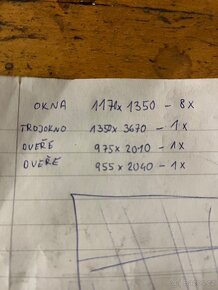 OKNA 1171x 1350 - 8x
TROJOKNO 1350x 3670 - 1x
DVEŘE 975x 2010 - 1x
DVEŘE 955x 2040 - 1x